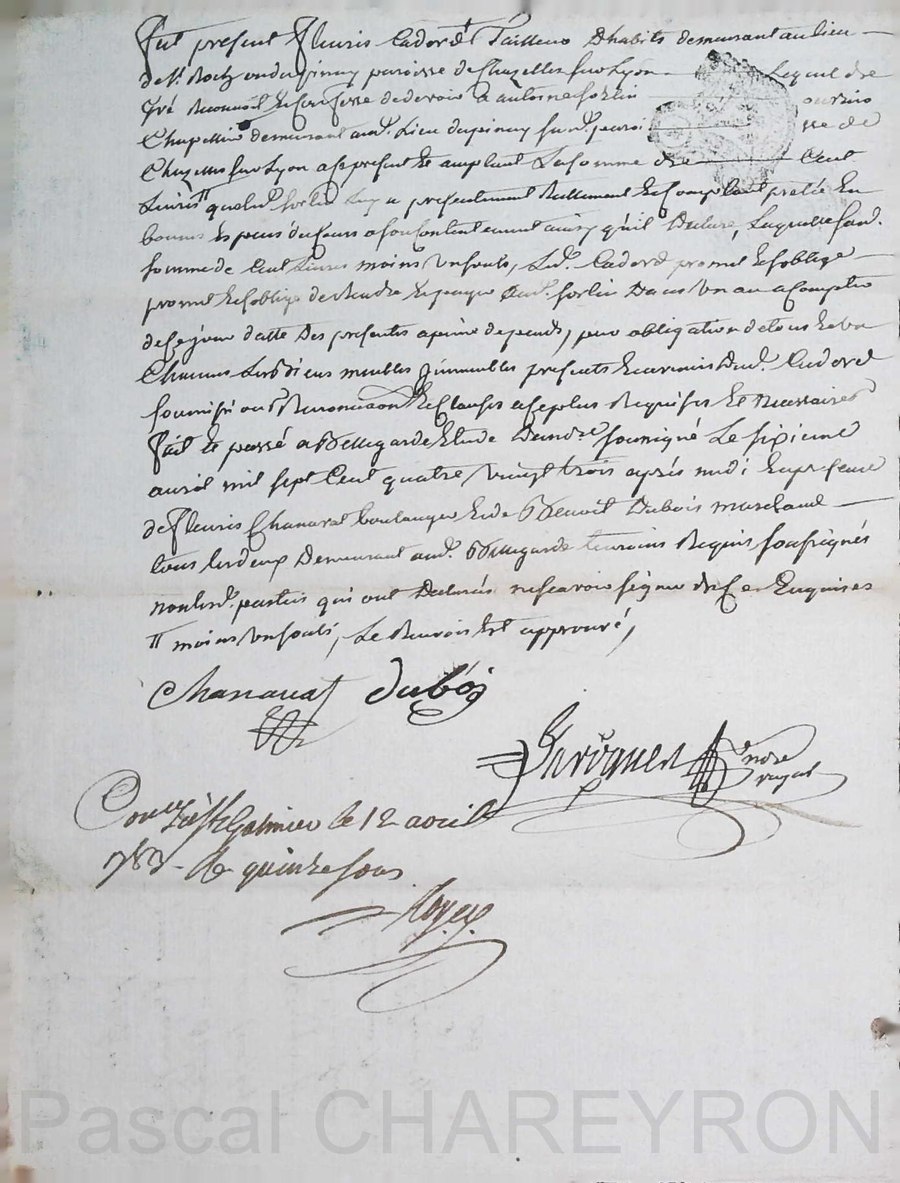 fut present fleuris Cadord Tailleur Dhabits demeurant au lieu
de St. Roch ou dupinay paroisse de Chazelles sur Lyon Lequel de
gré Reconnoit et Confesse de devoir a antoine fortin ouvrier
Chapellier demeurant aud. Lieu dupinay sur. paroisse de
Chazelles sur Lyon a ce present et acceptant La somme de Cent
Livres quoled. fortin Luy a presentement Reellement et Comptant pretée En
bonnes Especes du Cours a son Contentement ainsy qu'il Declare, Laquelle sus d.
somme de Cent Livres moins un sould, Led. Cadord promet et soblige
promet et soblige de Rendre et payer aud. fortin Dans un an a Compter
de Ce jour datte Des presentes a peine de depends, par obligation de tous et un
Chacuns Ses Biens meubles & immeubles presents et avenirs Dud. Cadord
soumis. Renonciaon et Clauses a Ce plus Requises et Necessaires
fait et passé a Bellegarde Etude Du nore soussigné Le sixieme
avril mil sept Cent quatre vingt trois après midi En presence
de fleuris Chanavat boulanger et de Benoit Dubois marchand
tous Les deux Demeurant aud. Bellegarde temoins Requis soussignés
non lesd. parties qui ont Declarés ne scavoir signer de Ce Enquises
moins un sould, Le Renvoi Est approuvé,
Chanavat Dubois
nore
royal
Con. à St Galmier le 12 avril
1783 - R quinze sous
Pascal CHAREYRON